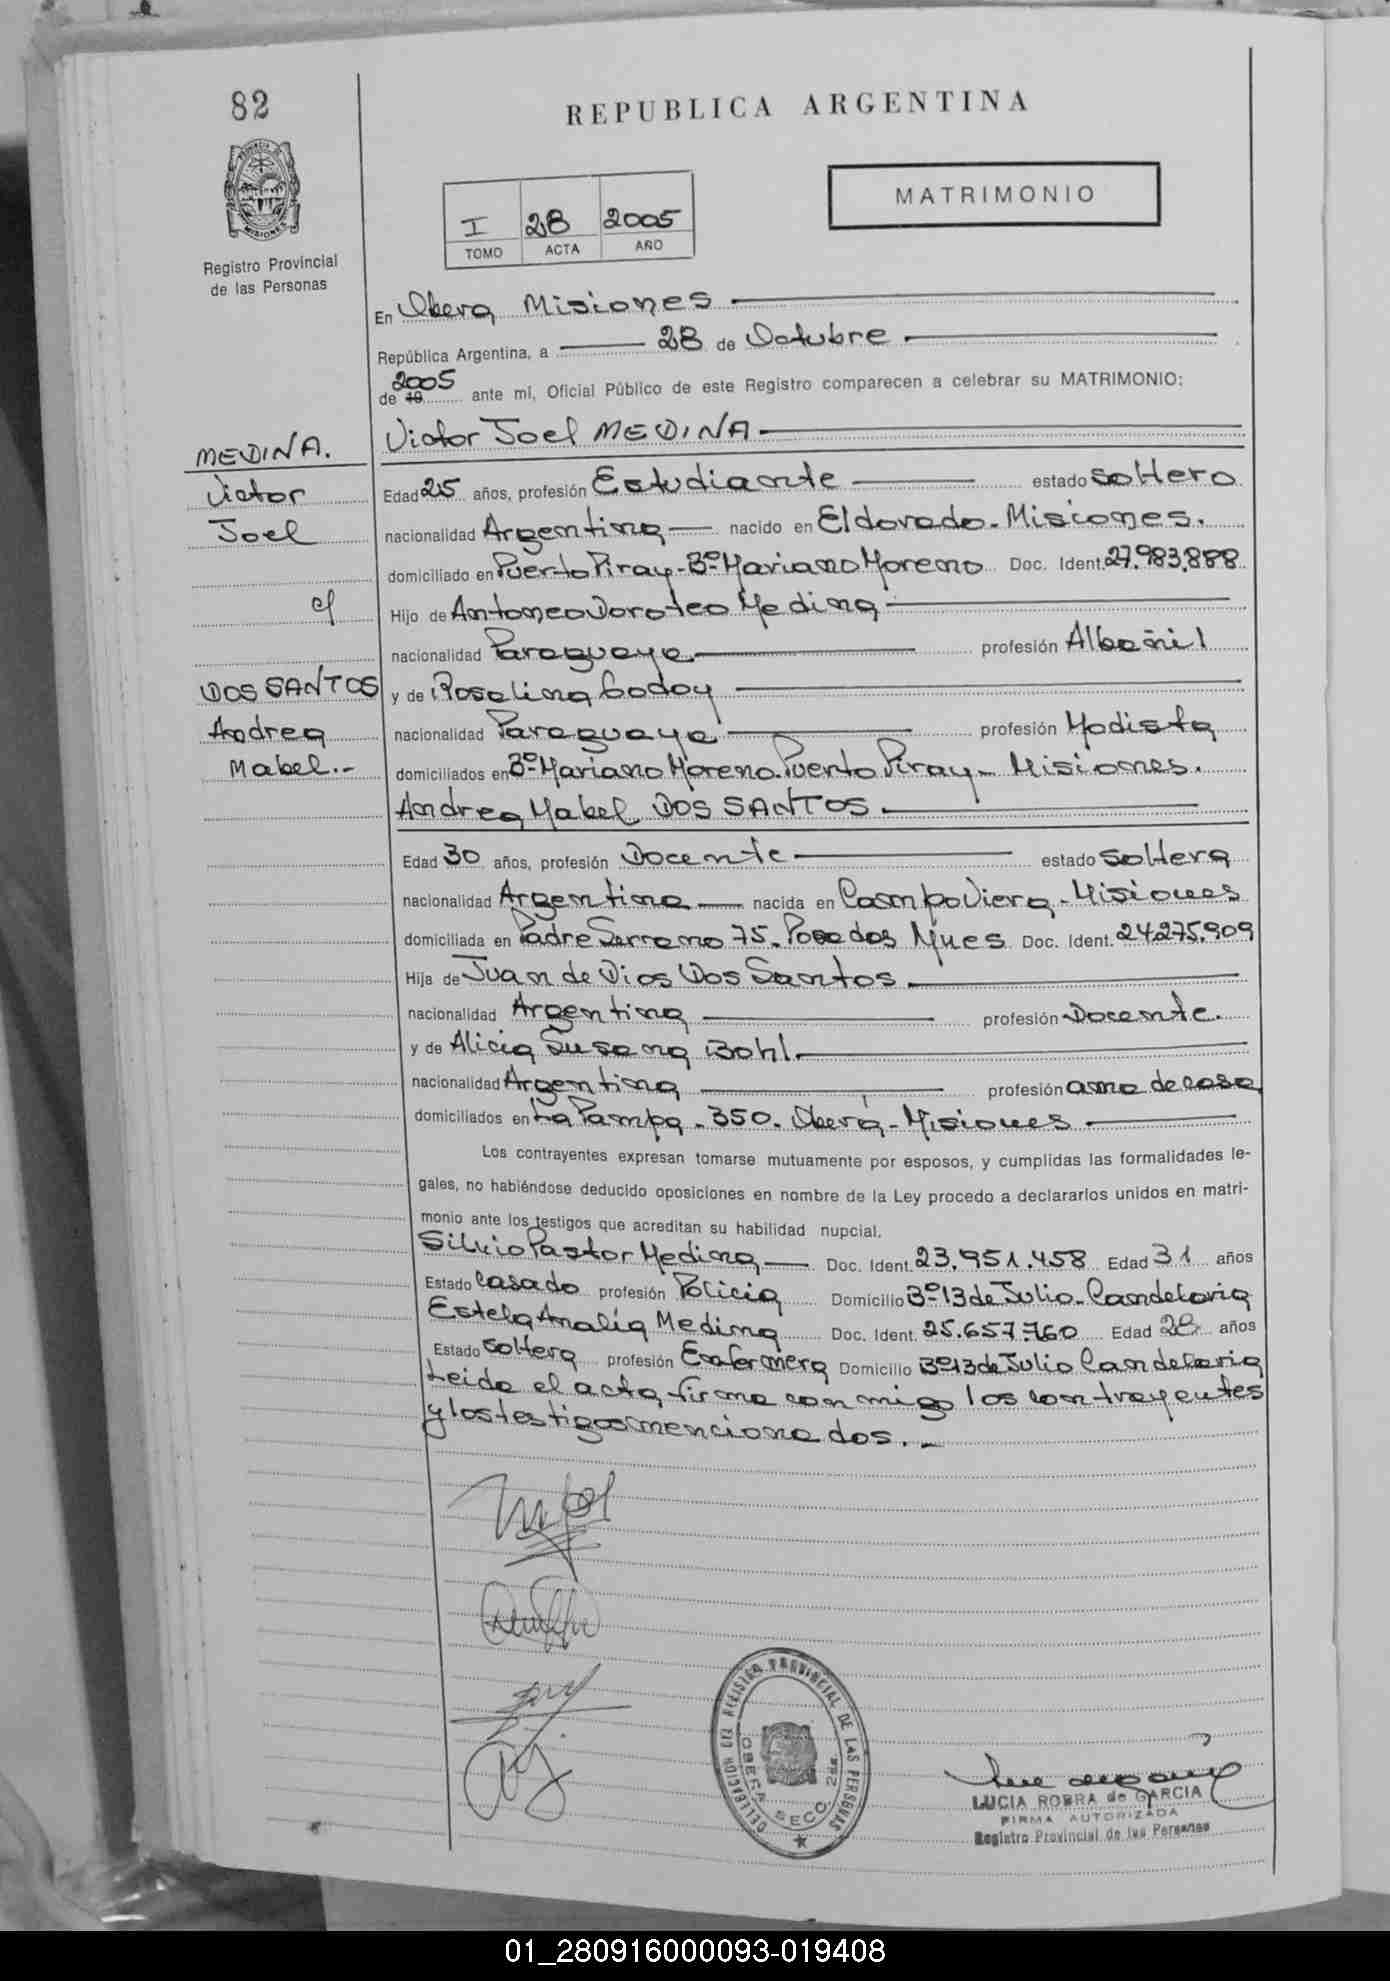 82
REPUBLICA ARGENTINA
MATRIMONIO
I 28 2005
TOMO ACTA AÑO
Registro Provincial
de las Personas
En Obera Misiones
República Argentina, a 28 de Octubre
de 19 2005 ante mí, Oficial Público de este Registro comparecen a celebrar su MATRIMONIO:
Victor Joel MEDINA
MEDINA.
Victor
Joel
c/
DOS SANTOS
Andrea
Mabel.-
Edad 25 años, profesión Estudiante estado soltero
nacionalidad Argentina nacido en Eldorado - Misiones.
domiciliado en Puerto Piray - Bº Mariano Moreno Doc. Ident. 27.983.888
Hijo de Antoneo Doroteo Medina
nacionalidad Paraguaya profesión Albañil
y de Rosalina Godoy
nacionalidad Paraguaya profesión Modista
domiciliados en Bº Mariano Moreno. Puerto Piray - Misiones.
Andrea Mabel DOS SANTOS
Edad 30 años, profesión Docente estado soltera
nacionalidad Argentina nacida en Campo Viera - Misiones
domiciliada en Padre Serrano 75. Posadas Mnes Doc. Ident. 24.275.909
Hija de Juan de Dios Dos Santos
nacionalidad Argentina profesión Docente.
y de Alicia Susana Bohl.
nacionalidad Argentina profesión ama de casa
domiciliados en La Pampa - 350. Oberá - Misiones
Los contrayentes expresan tomarse mutuamente por esposos, y cumplidas las formalidades le-
gales, no habiéndose deducido oposiciones en nombre de la Ley procedo a declararlos unidos en matri-
monio ante los testigos que acreditan su habilidad nupcial.
Silvio Pastor Medina Doc. Ident. 23.951.458 Edad 31 años
Estado casado profesión Policia Domicilio Bº 13 de Julio - Candelaria
Estela Analía Medina Doc. Ident. 25.657.760 Edad 28 años
Estado soltera profesión Enfermera Domicilio Bº 13 de Julio Candelaria
Leida el acta, firma con migo los contrayentes
y los testigos mencionados. -
DELEGACION DEL REGISTRO PROVINCIAL DE LAS PERSONAS
OBERA SECC. 2da
LUCIA ROBRA de GARCIA
FIRMA AUTORIZADA
Registro Provincial de las Personas
01_280916000093-019408